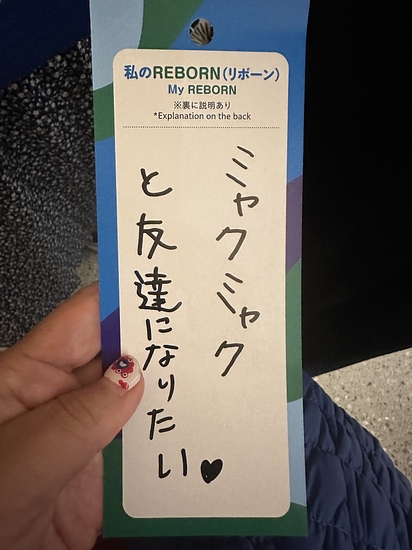 私のREBORN(リボーン)
My REBORN
※裏に説明あり
*Explanation on the back
ミャクミャク
と友達になりたい♥